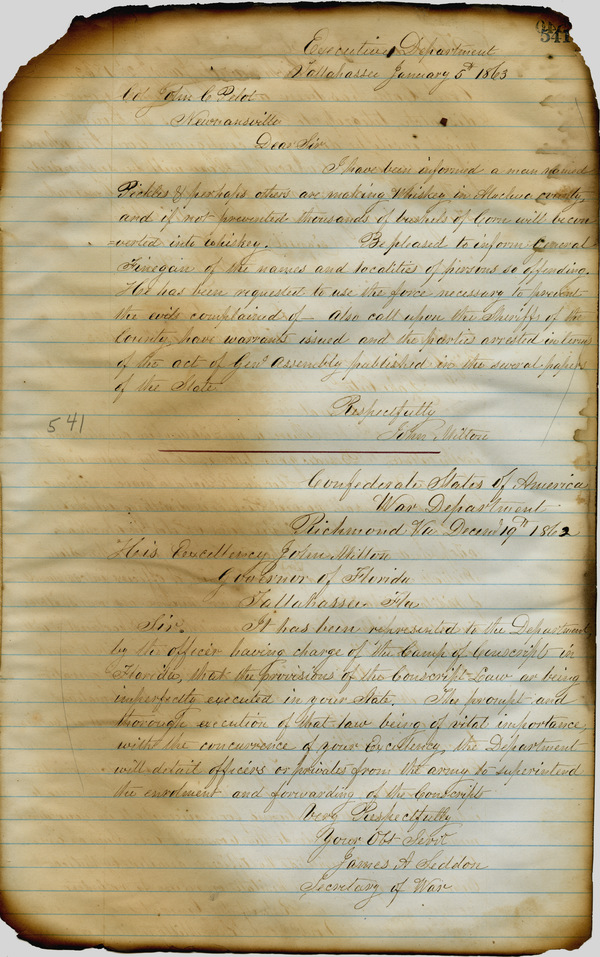 541
Executive Department
Tallahassee January 5th 1863
Col John C Pelot
Newnansville
Dear Sir
I have been informed a man named
Pickles & perhaps others are making Whiskey in Alachua county,
and if not prevented thousands of bushels of Corn will be con
=verted into whiskey. Be pleased to inform General
Finegan of the names and localities of persons so offending.
He has been requested to use the force necessary to prevent
the evils complained of - also call upon the Sheriff of the
County, have warrants issued and the parties arrested in
of the act of Genl Assembly published in the several papers
of the State
Respectfully
John Milton
541
Confederate States of America
War Department
Richmond Va Decem 19th 1862
His Excellency John Milton
Governor of Florida
Tallahassee Fla
Sir. It has been represented to the Department
by the officer having charge of the Camp of Conscripts in
Florida, that the provisions of the Conscript Law ar being
imperfectly executed in your State. The prompt and
thorough execution of that law being of vital importance,
with the concurrence of your Excellency, the Department
will detail officers or privates from the army to superintend
the enrolment and forwarding of the Conscripts
Very Respectfully
Your Obt Servt
James A Seddon
Secretary of War